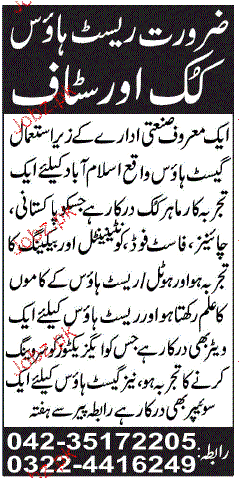 ضرورت ریسٹ ہاؤس
کک اور سٹاف
ایک معروف صنعتی ادارے کے زیر استعمال
گیسٹ ہاؤس واقع اسلام آباد کیلئے ایک
تجربہ کار ماہر کک درکار ہے جسکو پاکستانی،
چائینز، فاسٹ فوڈ، کونٹینینٹل اور بیکینگ کا
تجربہ ہو اور ہوٹل/ریسٹ ہاؤس کے کاموں
کا علم رکھتا ہو اور ریسٹ ہاؤس کیلئے ایک
ویٹر بھی درکار ہے جس کو ایگزیکٹوز کو سرونگ
کرنے کا تجربہ ہو، نیز گیسٹ ہاؤس کیلئے ایک
سوئیپر بھی درکار ہے رابطہ پیر سے ہفتہ
رابطہ: 042-35172205
0322-4416249